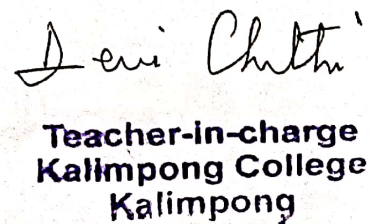 Devi Chettri
Teacher-in-charge
Kalimpong College
Kalimpong